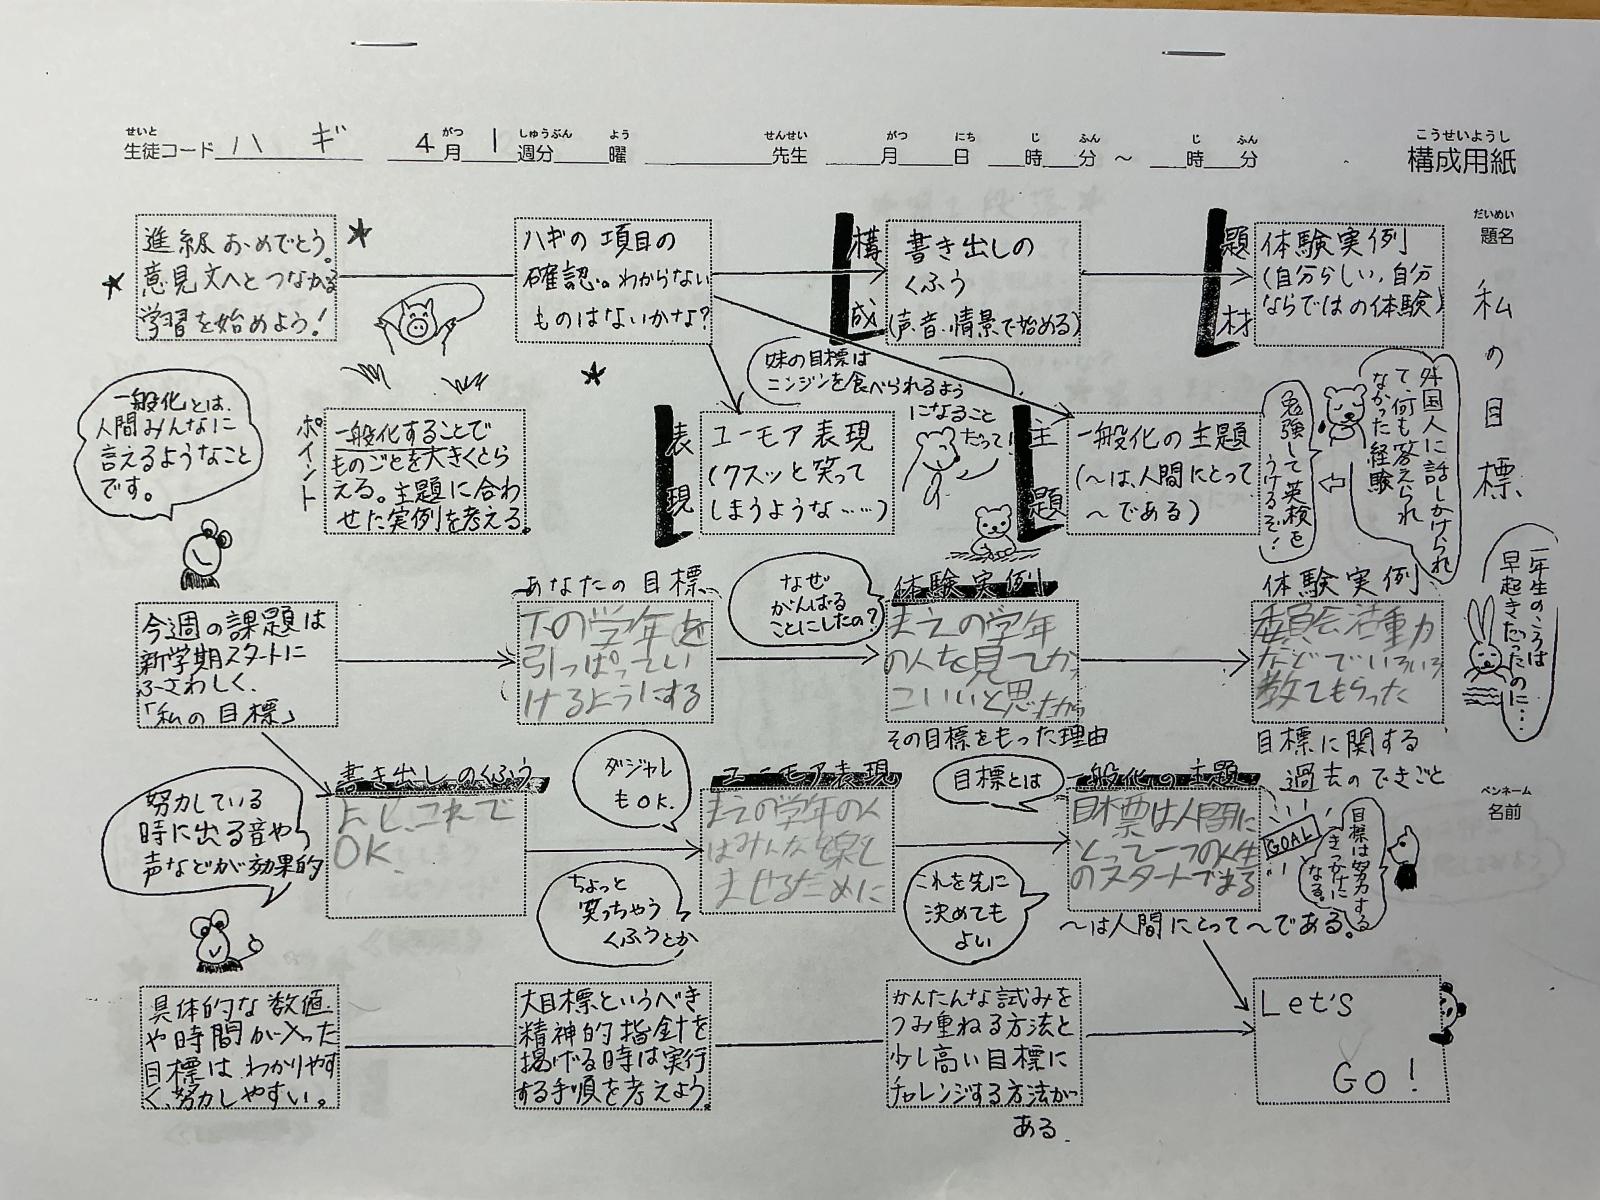 せいと がつ しゅうぶん よう せんせい がつ にち じ ふん じ ふん こうせいようし
生徒コード ハギ 4月 1週分 曜 先生 月 日 時 分 ～ 時 分 構成用紙
だいめい
題名
私の目標
進級おめでとう。
意見文へとつながる
学習を始めよう!
ハギの項目の
確認。わからない
ものはないかな?
構成
書き出しの
くふう
(声、音、情景で始める)
題材
体験実例
(自分らしい,自分
ならではの体験)
一般化とは、
人間みんなに
言えるようなこと
です。
ポイント
一般化することで
ものごとを大きくとら
える。主題に合わ
せた実例を考える。
妹の目標は
ニンジンを食べられるよう
になること
だって!
表現
ユーモア表現
(クスッと笑って
しまうような……)
主題
一般化の主題
(～は、人間にとって
～である)
外国人に話しかけられ
て、何も答えられ
なかった経験
勉強して英検を
うけるぞ!
今週の課題は
新学期スタートに
ふさわしく、
「私の目標」
あなたの目標
下の学年を
引っぱってい
けるようにする
なぜ
がんばる
ことにしたの?
体験実例
まえの学年
の人を見てか
こいいと思たから
その目標をもった理由
体験実例
委員会活動
などでいろいろ
教てもらった
目標に関する
過去のできごと
一年生のころは
早起きだったのに…
ペンネーム
名前
努力している
時に出る音や
声などが効果的
書き出しのくふう
よし、これで
OK
ダジャレ
もOK.
ちょっと
笑っちゃう
くふうとか
ユーモア表現
まえの学年の人
はみんなを
ませるために
目標とは
これを先に
決めても
よい
一般化の主題
目標は人間に
とって一つの人生
のスタートである
～は人間にとって～である。
GOAL
目標は努力する
きっかけに
なる。
具体的な数値
や時間が入った
目標はわかりやす
く、努力しやすい。
大目標というべき
精神的指針を
掲げる時は実行
する手順を考えよう。
かんたんな試みを
つみ重ねる方法と
少し高い目標に
チャレンジする方法が
ある.
Let's
GO!